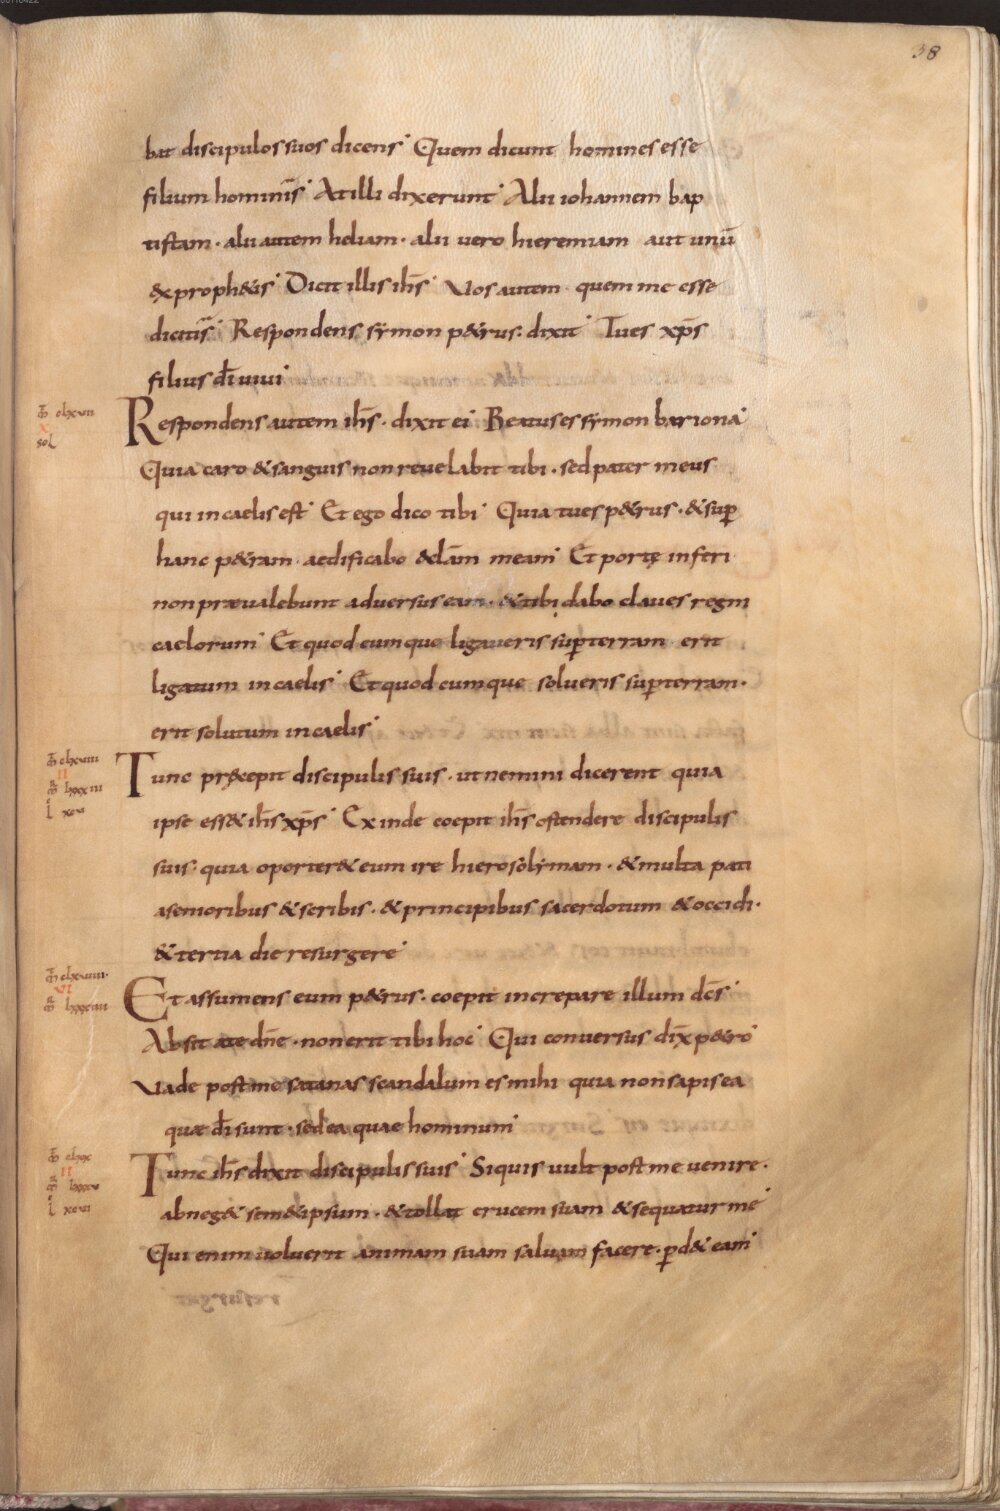 38
bat discipulos suos dicens Quem dicunt homines esse
filium hominis At illi dixerunt Alii iohannem bap
tistam · alii autem heliam · alii vero hieremiam aut unū
ex proph&is Dicit illis ih̄s Vos autem quem me esse
dicitis Respondens symon p&rus · dixit Tu es xp̄s
filius dī vivi
m̄ clxvii
x
sol
Respondens autem ih̄s · dixit ei Beatus es symon bariona
Quia caro & sanguis non revelabit tibi · sed pater meus
qui in caelis est Et ego dico tibi Quia tu es p&rus · & sup̄
hanc p&ram aedificabo &clām meam Et portę inferi
non praevalebunt adversus eam · & tibi dabo claves regni
caelorum Et quodcumque ligaveris sup̄ terram erit
ligatum in caelis Et quodcumque solveris sup̄ terram ·
erit solutum in caelis
m̄ clxviii
II
m̄ lxxxiii
l xcvi
Tunc pręcepit discipulis suis · ut nemini dicerent quia
ipse ess& ih̄s xp̄s Exinde coepit ih̄s ostendere discipulis
suis · quia oporter& eum ire hierosolymam · & multa pati
a senioribus & scribis · & principibus sacerdotum & occidi ·
& tertia die resurgere
m̄ clxviiii
VI
m̄ lxxxiiii
Et assumens eum p&rus · coepit increpare illum dc̄s
Absit a te dn̄e · non erit tibi hoc Qui conversus dix̄ p&ro
Vade post me satanas scandalum es mihi quia non sapis ea
quae dī sunt · sed ea quae hominum
m̄ clxx
II
m̄ lxxxv
l xcvi
Tunc ih̄s dixit discipulis suis Si quis vult post me venire ·
abneg& sem&ipsum · & tollat crucem suam & sequatur me
Qui enim voluerit animam suam salvam facere · p̄d& eam